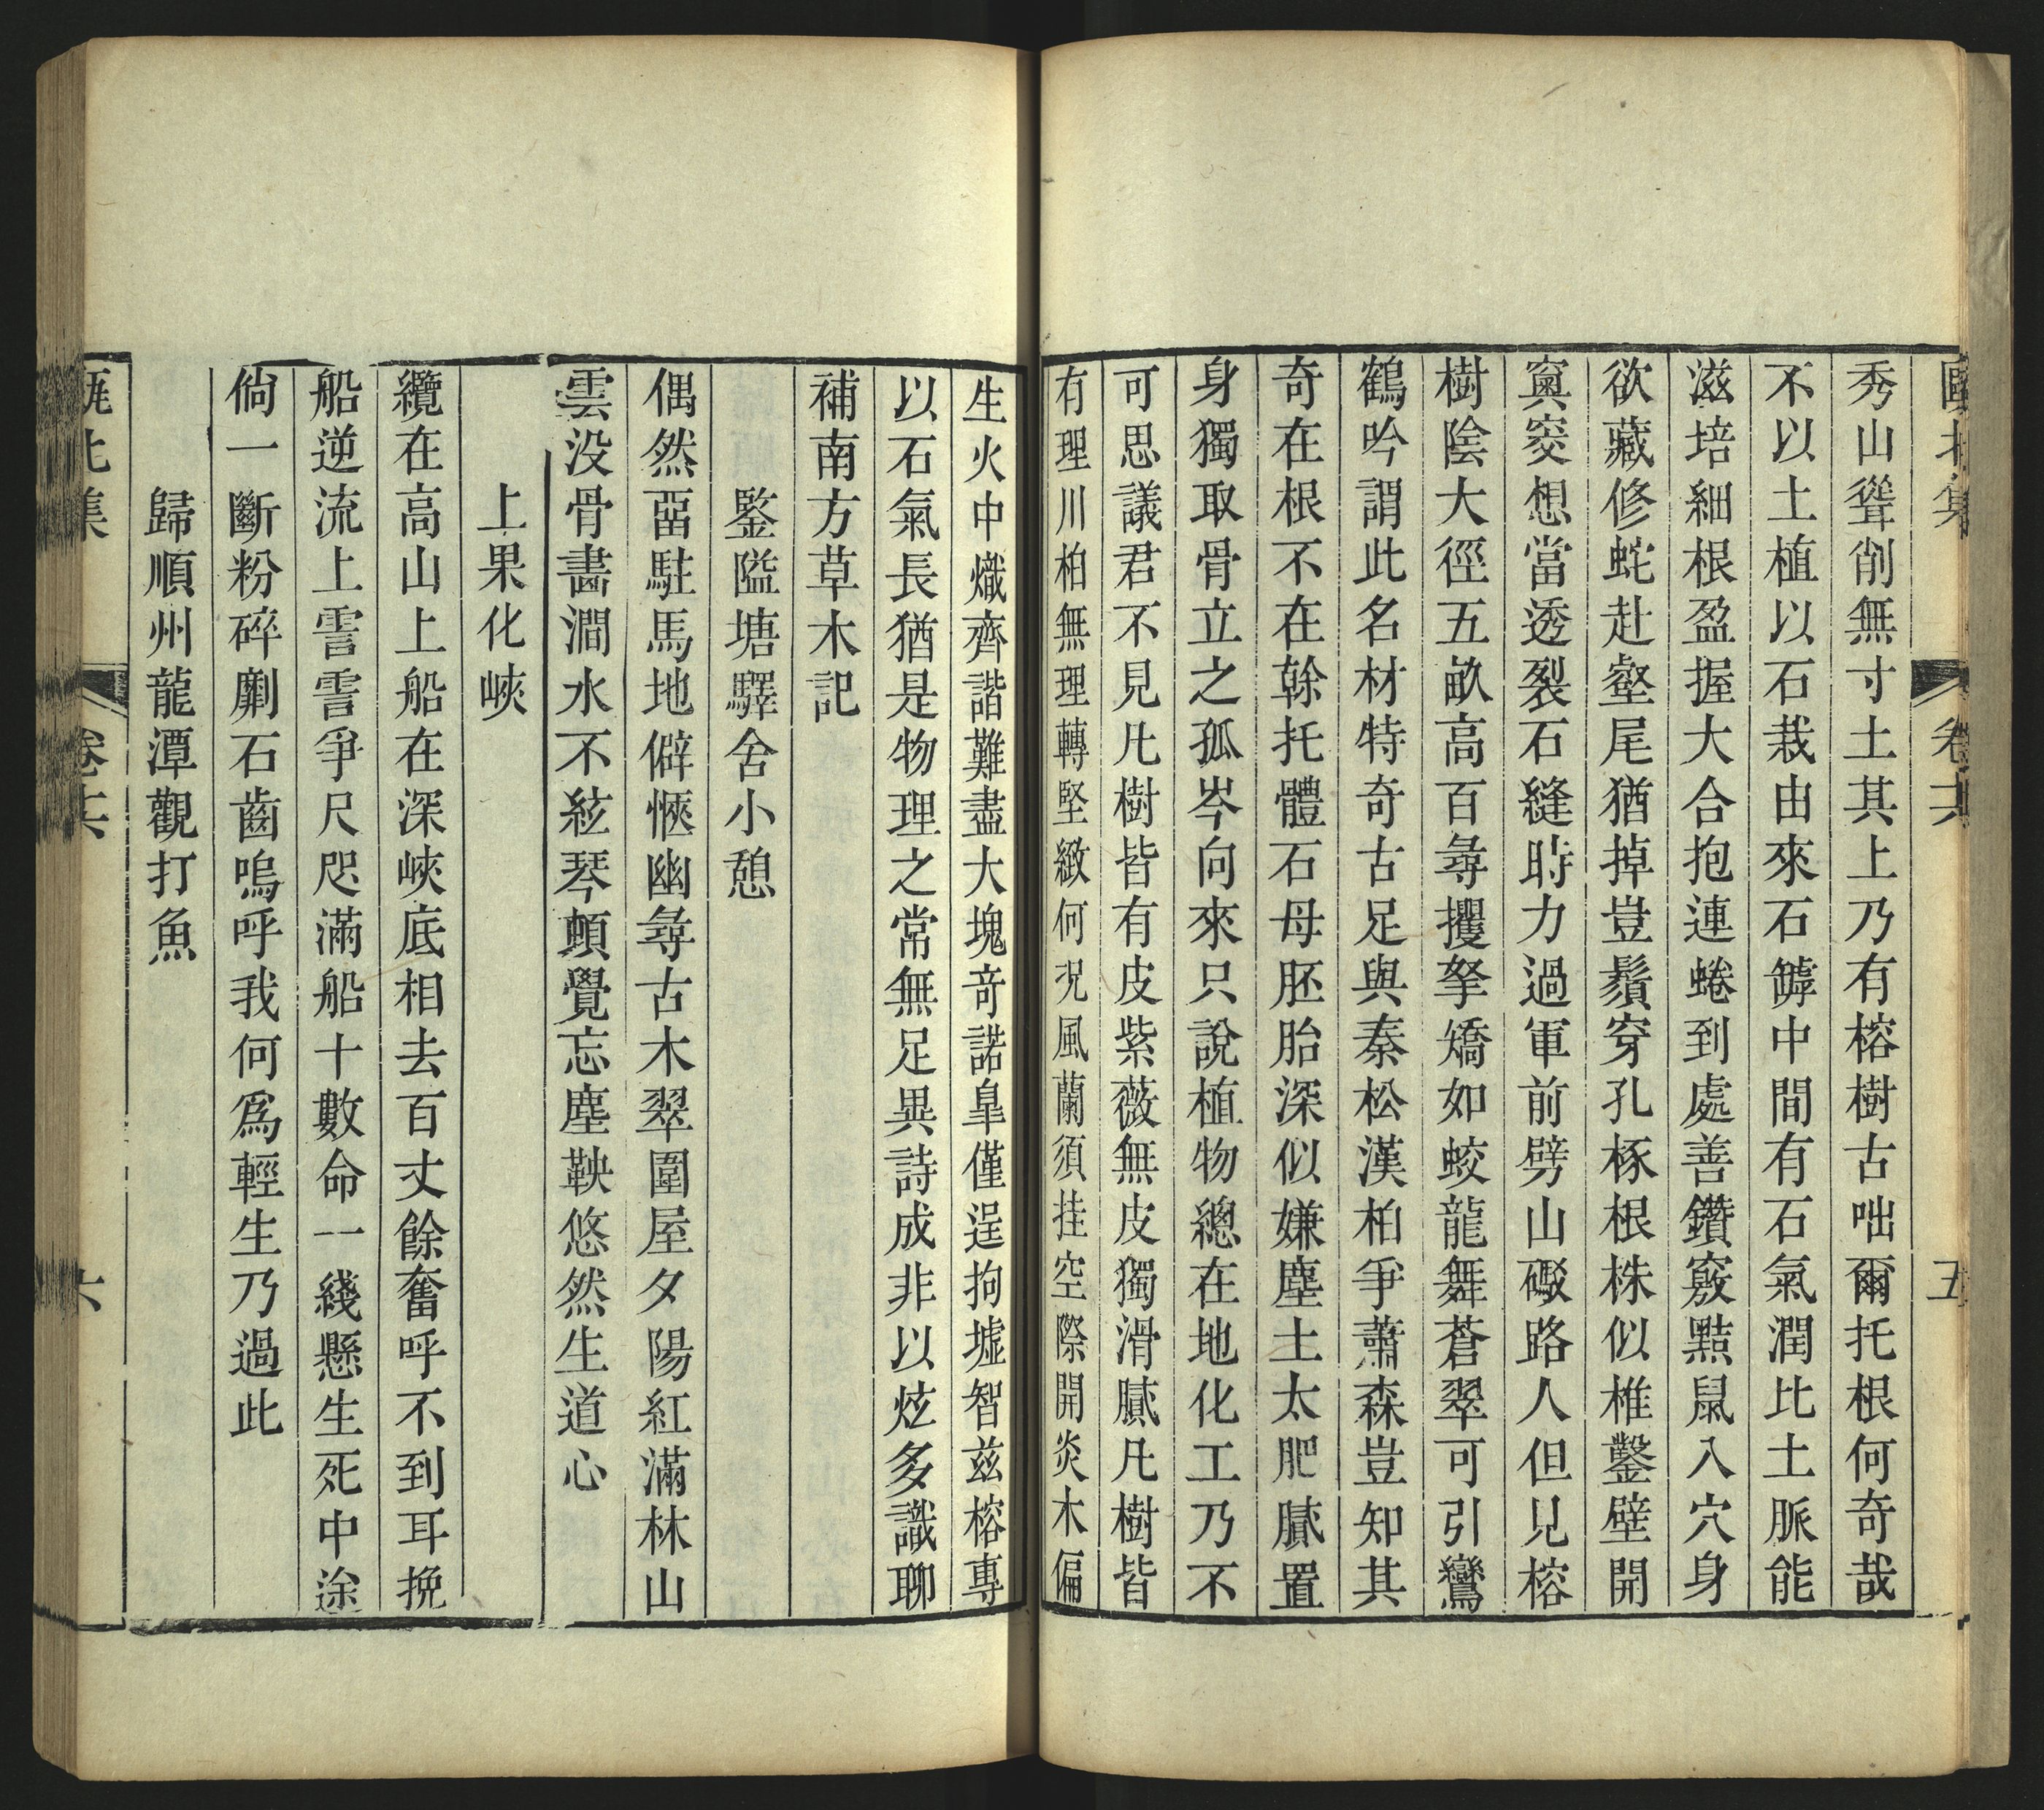 甌北集 卷十六 五
秀山聳削無寸土其上乃有榕樹古咄爾托根何奇哉
不以土植以石栽由來石罅中間有石氣潤比土脈能
滋培細根盈握大合抱連蜷到處善鑽竅黠鼠入穴身
欲藏修蛇赴壑尾猶掉豈鬚穿孔椓根株似椎鑿壁開
窾窔想當透裂石縫時力過軍前劈山礮路人但見榕
樹陰大徑五畝高百尋攫拏矯如蛟龍舞蒼翠可引鸞
鶴吟謂此名材特奇古足與秦松漢柏爭蕭森豈知其
奇在根不在榦托體石母胚胎深似嫌塵土太肥膩置
身獨取骨立之孤岑向來只說植物總在地化工乃不
可思議君不見凡樹皆有皮紫薇無皮獨滑膩凡樹皆
有理川柏無理轉堅緻何況風蘭須挂空際開炎木偏
生火中熾齊諧難盡大塊奇諾皐僅逞拘墟智茲榕專
以石氣長猶是物理之常無足異詩成非以炫多識聊
補南方草木記
鑒隘塘驛舍小憩
偶然畱駐馬地僻愜幽尋古木翠圍屋夕陽紅滿林山
雲没骨畵澗水不絃琴頓覺忘塵鞅悠然生道心
上果化峽
纜在高山上船在深峽底相去百丈餘奮呼不到耳挽
船逆流上霅霅爭尺咫滿船十數命一綫懸生死中途
倘一斷粉碎劘石齒嗚呼我何爲輕生乃過此
歸順州龍潭觀打魚
甌北集 卷十六 六